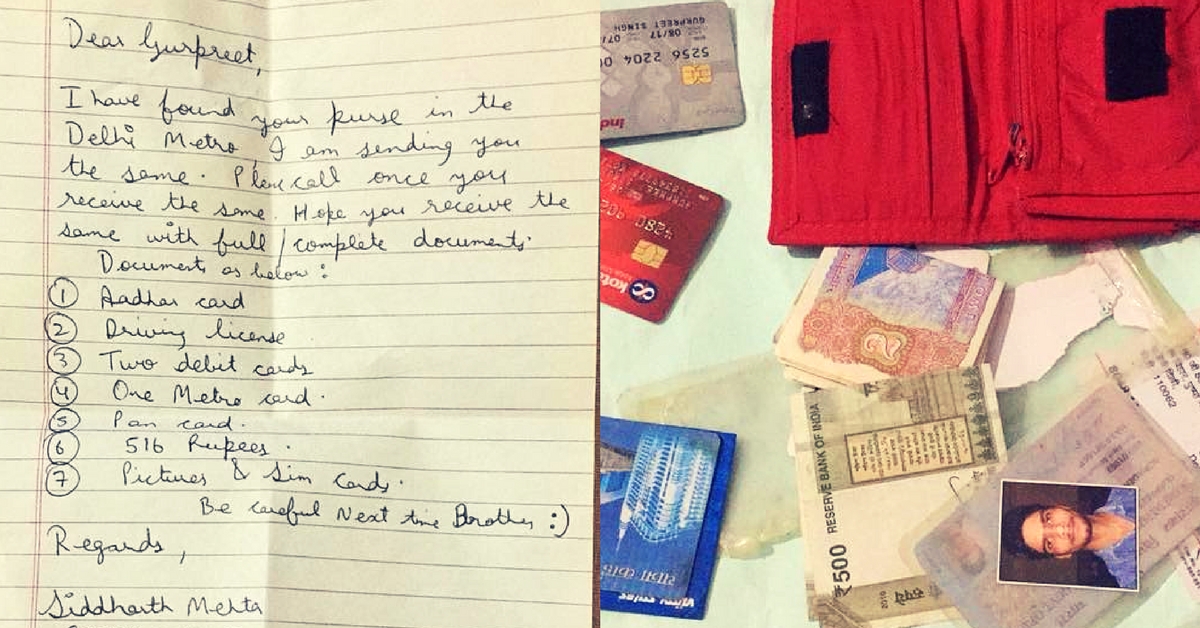 Dear Gurpreet,
I have found your purse in the
Delhi Metro, I am sending you
the same. Please call once you
receive the same. Hope you receive the
same with full/complete documents.
Documents as below:
1 Aadhar card
2 Driving license
3 Two debit cards
4 One Metro card.
5 Pan card.
6 516 Rupees.
7 Pictures & Sim cards.
Be careful Next time Brother :)
Regards,
Siddharth Mehta
5256 2204 0
08/17 07/
GURPREET SINGH
kota
RESERVE BANK OF INDIA
₹500
2016
2
110062